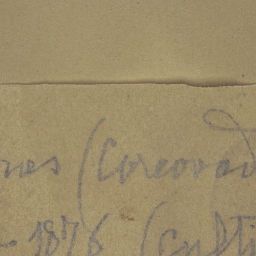 res (Corcovad
- 1876 (culti